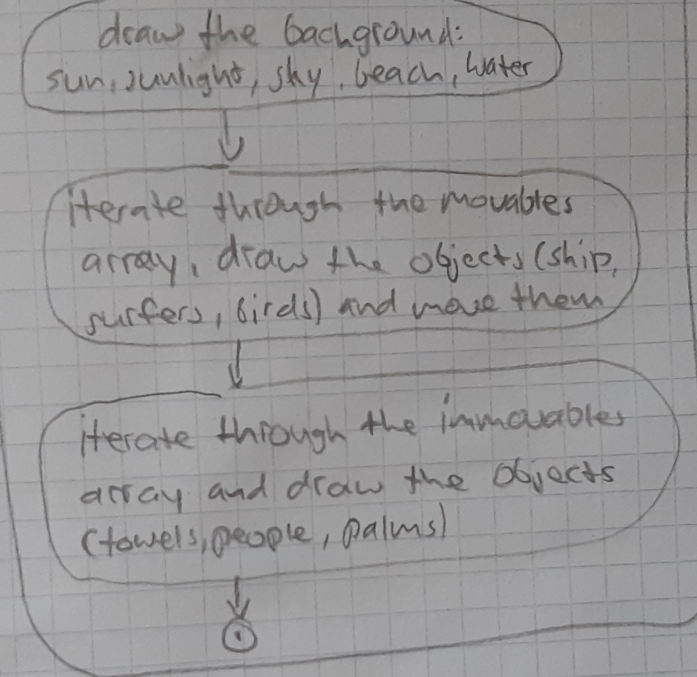 draw the background:
sun, sunlight, sky, beach, water
iterate through the movables
array, draw the objects (ship,
surfers, birds) and move them
iterate through the immovables
array and draw the objects
(towels, people, palms)